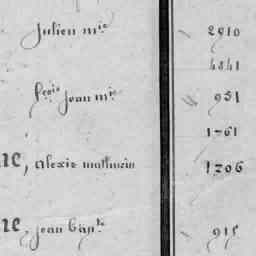 Julien m.ie 2910
4841
fçois Jean m.ie 951
1761
ne, alexis mathurin 1706
ne, jean bap.te 915